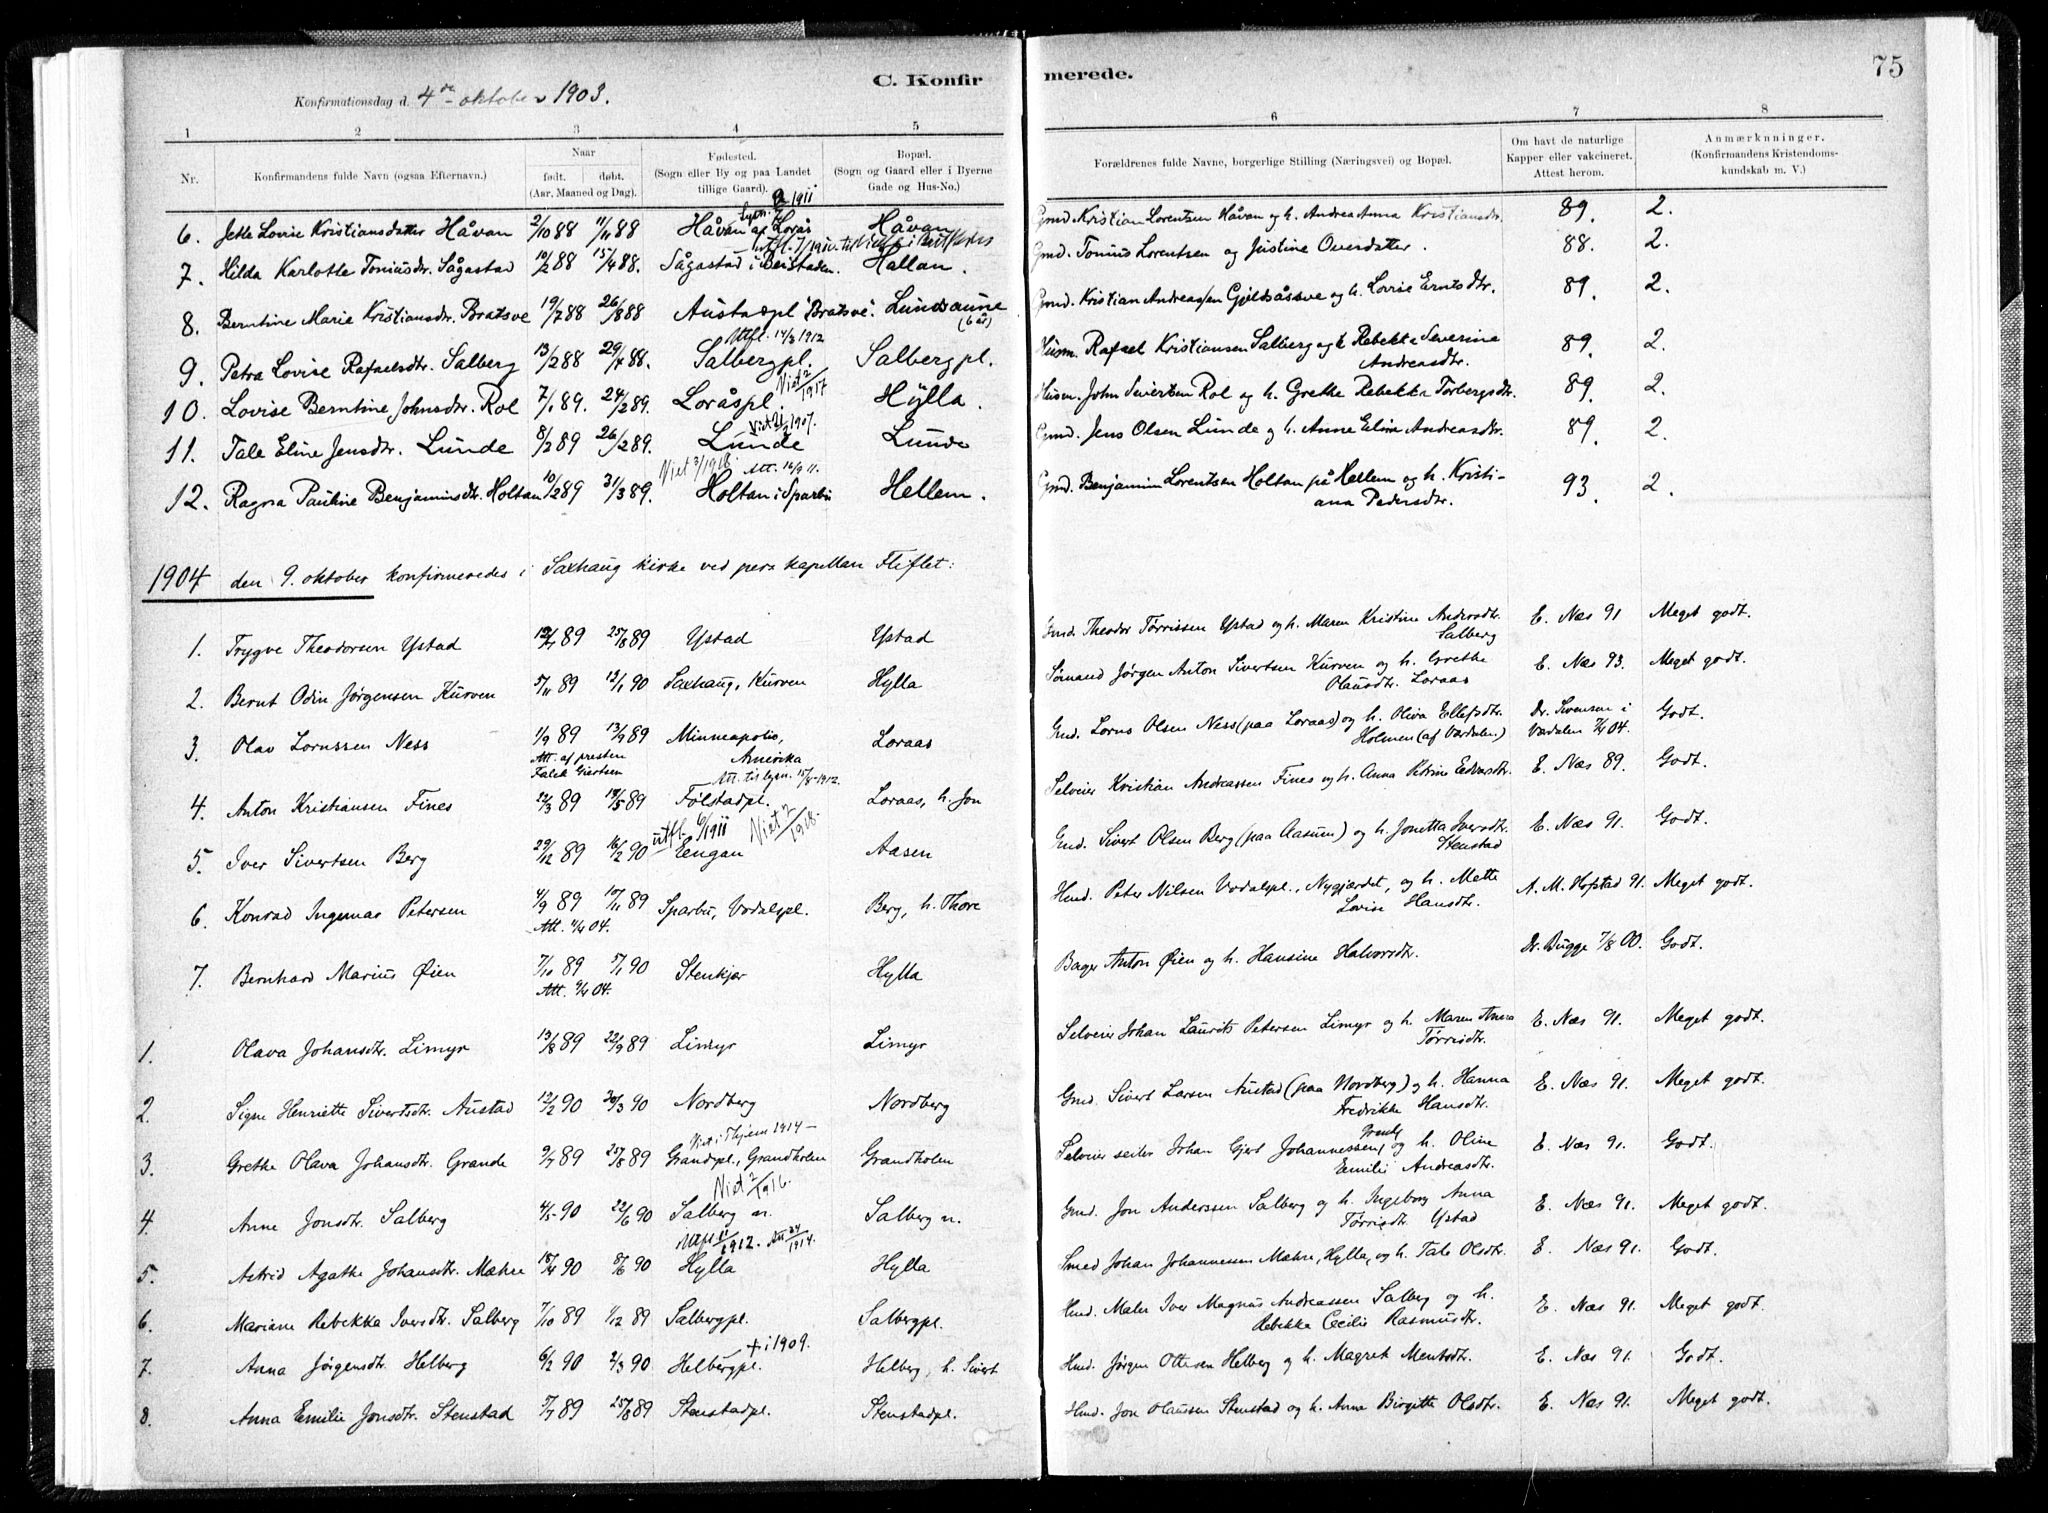 C. Konfirmerede. 75
Konfirmationsdag d. 4de oktober 1903.
1 2 3 4 5 6 7 8
Nr. Konfirmandens fulde Navn (ogsaa Efternavn.) Naar født. døbt. (Aar. Maaned og Dag). Fødested. (Sogn eller By og paa Landet tillige Gaard). Bopæl. (Sogn og Gaard eller i Byerne Gade og Hus-No.) Forældrenes fulde Navne, borgerlige Stilling (Næringsvei) og Bopæl. Om havt de naturlige Kapper eller vakcineret. Attest herom. Anmærkninger. (Konfirmandens Kristendomskundskab m. V.)
6. Jette Lovise Kristiansdatter Håvan 2/10 88 11/11 88 Håvan af Lorås Håvan Gmd. Kristian Lorentsen Håvan og h. Andrea Anna Kristiansdr. 89. 2.
7. Hilda Karlotte Toniusdr. Sågastad 10/2 88 15/4 88. Sågastad i Beistaden. Hallan. Gmd. Tonius Lorentsen og Justine Oversdatter. 88. 2.
8. Berntine Marie Kristiansdr. Bratsve 19/7 88 26/8 88 Austadpl. Bratsve. Lundsaune (6 år) Gmd. Kristian Andreassen Gjeldsåssve og h. Lovise Erntsdtr. 89. 2.
Utfl. 14/3 1912
9. Petra Lovise Rafaelsdtr. Salberg 13/2 88 29/4 88. Salbergpl. Salbergpl. Husm. Rafael Kristiansen Salberg og h. Rebekka Severine Andreasdtr. 89. 2.
Viet 2/1917
10. Lovise Berntine Johnsdtr. Rol 7/1 89. 24/2 89. Loråspl. Hylla. Husm. John Sivertsen Rol og h. Grethe Rebekka Torbergsdtr. 89. 2.
11. Tale Eline Jensdtr. Lunde 8/2 89 26/2 89. Lunde Lunde Gmd. Jens Olsen Lunde og h. Anne Eline Andreasdtr. 89. 2.
Viet 3/1918. Att. 16/9 11.
12. Ragna Pauline Benjaminsdtr. Holtan 10/2 89 31/3 89. Holtan i Sparbu Hellem. Gmd. Benjamin Lorentsen Holtan på Hellem og h. Kristiana Pedersdtr. 93. 2.
1904 den 9. oktober konfirmeredes i Saxhaug kirke ved pers. kapellan Fliflet:
1. Trygve Theodorsen Ystad 12/7 89 25/8 89 Ystad Ystad Gmd. Theodor Tørrissen Ystad og h. Maren Kristine Andersdtr. Salberg E. Næs 91 Meget godt.
2. Bernt Odin Jørgensen Kurven 5/11 89 12/1 90 Saxhaug, Kurven Hylla Sømand Jørgen Anton Sivertsen Kurven og h. Grethe Olausdtr. Loraas E. Næs 93. Meget godt.
3. Olav Lornssen Ness 1/9 89 13/9 89 Minneapolis, Amerika Loraas Gmd. Lorns Olsen Ness (paa Loraas) og h. Oliva Ellefsdtr. Holmen (af Værdalen.) Dr. Svensen i Værdalen 7/4 04. Godt.
Att. af presten Falck Giertsen
Att. til lysn. 15/5-1912.
4. Anton Kristiansen Fines 22/3 89 19/5 89 Følstadpl. Loraas, h. Jon Selveier Kristian Andreassen Fines og h. Anna Petrine Edvarsdtr. E. Næs 89. Godt.
utfl. 6/1911 Viet 2/1918.
5. Iver Sivertsen Berg 29/12 89 16/2 90 Eengan Aasen Gmd. Sivert Olsen Berg (paa Aasum) og h. Jonetta Iversdtr. Stenstad E. Næs 91. Godt.
6. Konrad Ingemas Petersen 4/9 89 10/11 89 Sparbu, Vodalspl. Berg, h. Thore Hmd. Peter Nilsen Vodalspl., Nygjærdet, og h. Mette Lovise Hansdtr. A. M. Hofstad 91. Meget godt.
Att. 4/4 04.
7. Bernhard Marius Øien 7/10 89 5/1 90 Stenkjer Hylla Bager Anton Øien og h. Hansine Halvorsdtr. Dr. Bugge 7/8 00. Godt.
Att. 9/4 04.
1. Olava Johansdtr. Limyr 13/8 89 22/9 89 Limyr Limyr Selveier Johan Laurits Petersen Limyr og h. Maren Anna Tørrisdtr. E. Næs 91. Meget godt.
2. Signe Henriette Sivertsdtr. Austad 12/2 90 30/3 90 Nordberg Nordberg Gmd. Sivert Larsen Austad (paa Nordberg) og h. Hanna Fredrikke Hansdtr. E. Næs 91. Meget godt.
Viet i Thjem 1914 —
3. Grethe Olava Johansdtr. Grande 9/7 89 25/8 89 Grandpl., Grandholm Grandholm Selveier seiler Johan Gjert Johannessen Grande, og h. Oline Emilie Andreasdtr. E. Næs 91. Godt.
Viet 2/1916.
4. Anne Jonsdtr. Salberg 4/5 90 22/6 90 Salberg n. Salberg n. Gmd. Jon Anderssen Salberg og h. Ingeborg Anna Tørrisdtr. Ystad E. Næs 91. Meget godt.
Utfl. 11/1912. Att 24/1914.
5. Astrid Agathe Johansdtr. Mæhre 18/4 90 8/6 90 Hylla Hylla Smed Johan Johannessen Mæhre, Hylla, og h. Tale Olsdtr. E. Næs 91. Godt.
6. Mariane Rebekka Iversdtr. Salberg 7/10 89 1/12 89 Salbergpl. Salbergpl. Hmd. Maler Iver Magnus Andreassen Salberg og h. Rebekka Cecilie Rasmusdtr. E. Næs 91. Meget godt.
+ i 1909.
7. Anna Jørgensdtr. Helberg 6/2 90 2/3 90 Helbergpl. Helberg, h. Sivert Hmd. Jørgen Ottesen Helberg og h. Magret Mentsdtr. E. Næs 91. Godt.
8. Anna Emilie Jonsdtr. Stenstad 5/7 89 25/8 89 Stenstadpl. Stenstadpl. Hmd. Jon Olaussen Stenstad og h. Anne Birgitte Olsdtr. E. Næs 91. Meget godt.